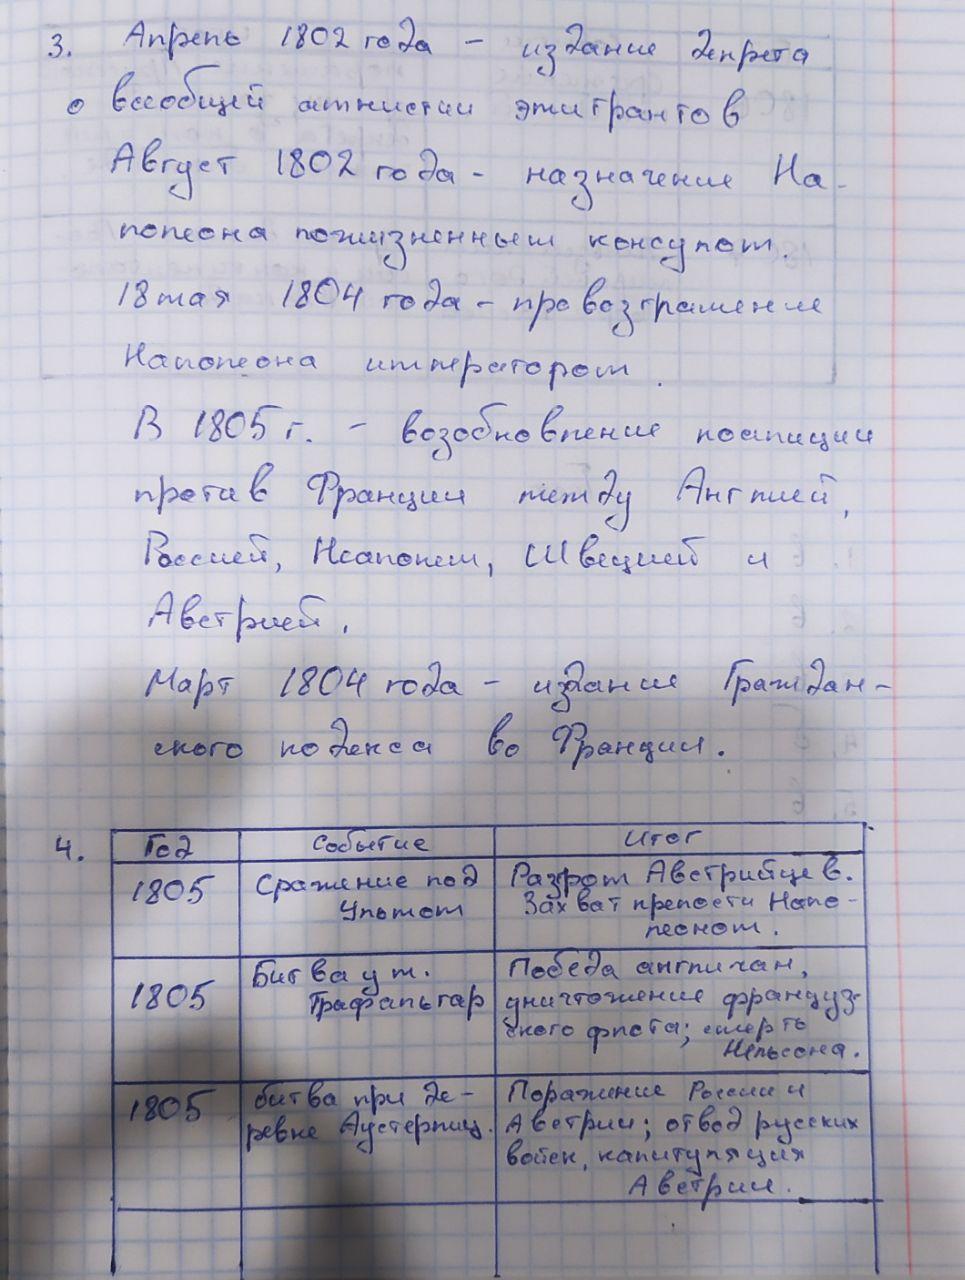 3. Апрель 1802 года - издание декрета
о всеобщей амнистии эмигрантов
Август 1802 года - назначение На-
полеона пожизненным консулом.
18 мая 1804 года - провозглашение
Наполеона императором.
В 1805 г. - возобновление коалиции
против Франции между Англией,
Россией, Неаполем, Швецией и
Австрией.
Март 1804 года - издание Граждан-
ского кодекса во Франции.
4. Год Событие Итог
1805 Сражение под Ульмом
Разгром Австрийцев.
Захват крепости Напо-
леоном.
1805 Битва у м.
Трафальгар
Победа англичан,
уничтожение француз-
ского флота; смерть
Нельсона.
1805 битва при де-
ревне Аустерлиц.
Поражение России и
Австрии; отвод русских
войск, капитуляция
Австрии.